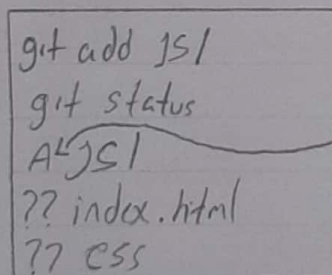 git add JS/
git status
A JS/
?? index.html
?? css